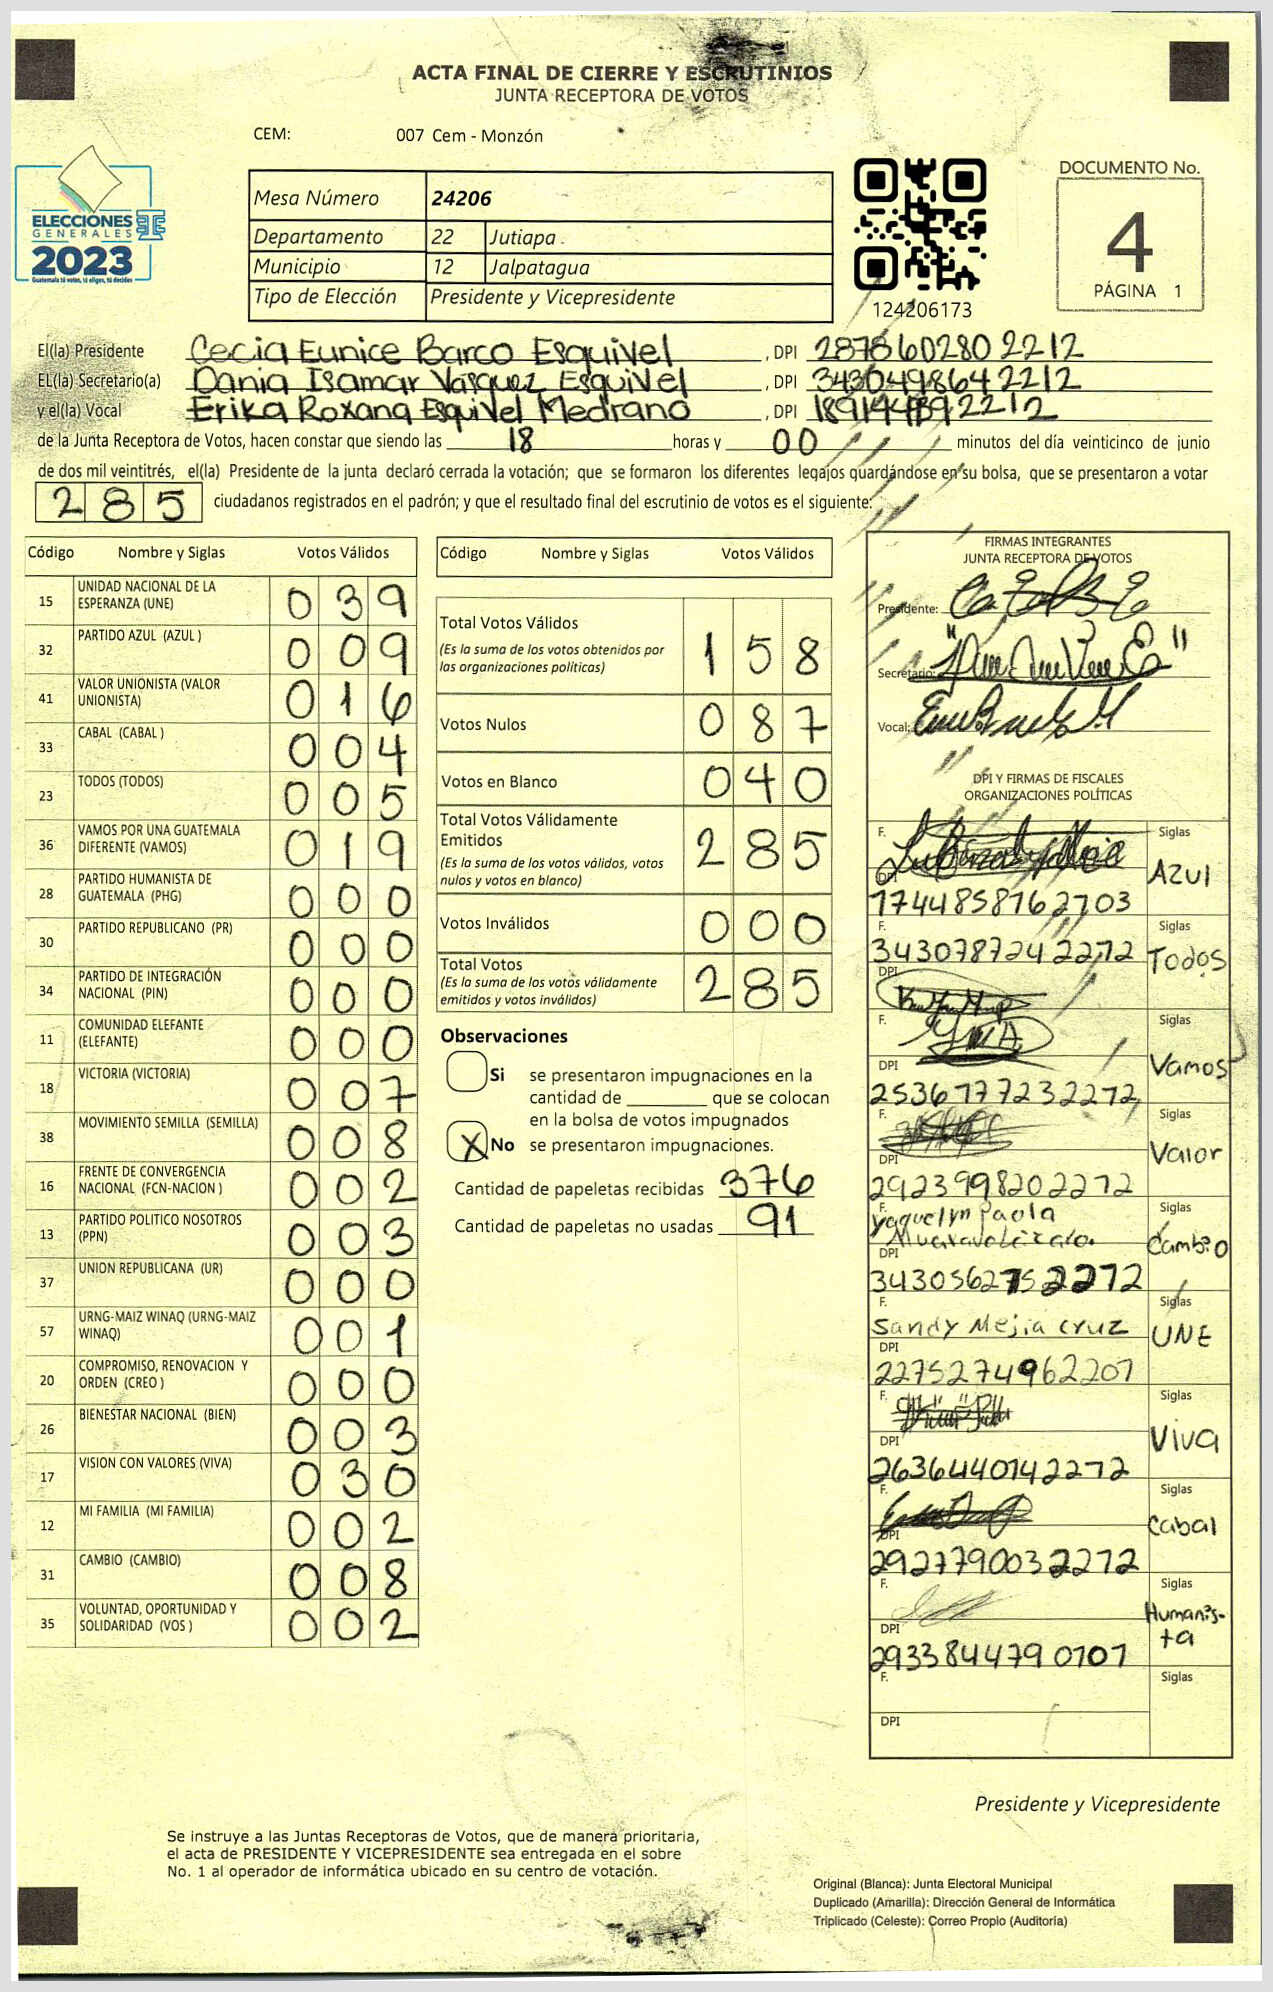 ACTA FINAL DE CIERRE Y ESCRUTINIOS
JUNTA RECEPTORA DE VOTOS
CEM: 007 Cem - Monzón
ELECCIONES
GENERALES
2023
Guatemala tú votas, tú eliges, tú decides
Mesa Número 24206
Departamento 22 Jutiapa
Municipio 12 Jalpatagua
Tipo de Elección Presidente y Vicepresidente
124206173
DOCUMENTO No.
4
PÁGINA 1
El(la) Presidente Cecia Eunice Barco Esquivel, DPI 2878602802212
EL(la) Secretario(a) Dania Isamar Vásquez Esquivel, DPI 3430498642212
y el(la) Vocal Erika Roxana Esquivel Medrano, DPI
de la Junta Receptora de Votos, hacen constar que siendo las 18 horas y 00 minutos del día veinticinco de junio
de dos mil veintitrés, el(la) Presidente de la junta declaró cerrada la votación; que se formaron los diferentes legajos guardándose en su bolsa, que se presentaron a votar
285 ciudadanos registrados en el padrón; y que el resultado final del escrutinio de votos es el siguiente:
Código Nombre y Siglas Votos Válidos
15 UNIDAD NACIONAL DE LA ESPERANZA (UNE) 039
32 PARTIDO AZUL (AZUL ) 009
41 VALOR UNIONISTA (VALOR UNIONISTA) 016
33 CABAL (CABAL ) 004
23 TODOS (TODOS) 005
36 VAMOS POR UNA GUATEMALA DIFERENTE (VAMOS) 019
28 PARTIDO HUMANISTA DE GUATEMALA (PHG) 000
30 PARTIDO REPUBLICANO (PR) 000
34 PARTIDO DE INTEGRACIÓN NACIONAL (PIN) 000
11 COMUNIDAD ELEFANTE (ELEFANTE) 000
18 VICTORIA (VICTORIA) 007
38 MOVIMIENTO SEMILLA (SEMILLA) 008
16 FRENTE DE CONVERGENCIA NACIONAL (FCN-NACION ) 002
13 PARTIDO POLITICO NOSOTROS (PPN) 003
37 UNION REPUBLICANA (UR) 000
57 URNG-MAIZ WINAQ (URNG-MAIZ WINAQ) 001
20 COMPROMISO, RENOVACION Y ORDEN (CREO ) 000
26 BIENESTAR NACIONAL (BIEN) 003
17 VISION CON VALORES (VIVA) 030
12 MI FAMILIA (MI FAMILIA) 002
31 CAMBIO (CAMBIO) 008
35 VOLUNTAD, OPORTUNIDAD Y SOLIDARIDAD (VOS ) 002
Código Nombre y Siglas Votos Válidos
Total Votos Válidos 158
(Es la suma de los votos obtenidos por
las organizaciones políticas)
Votos Nulos 087
Votos en Blanco 040
Total Votos Válidamente
Emitidos 285
(Es la suma de los votos válidos, votos
nulos y votos en blanco)
Votos Inválidos 000
Total Votos 285
(Es la suma de los votos válidamente
emitidos y votos inválidos)
Observaciones
Si se presentaron impugnaciones en la
cantidad de ________ que se colocan
en la bolsa de votos impugnados
X No se presentaron impugnaciones.
Cantidad de papeletas recibidas 376
Cantidad de papeletas no usadas 91
FIRMAS INTEGRANTES
JUNTA RECEPTORA DE VOTOS
Presidente:
Secretario:
Vocal:
DPI Y FIRMAS DE FISCALES
ORGANIZACIONES POLÍTICAS
F. Siglas
DPI Azul
1744858762703
F. Siglas
3430787242272 Todos
DPI
F. Siglas
DPI Vamos
2536777232272
F. Siglas
DPI Valor
2923998202272
F. Siglas
Yaquelyn Paola
DPI Cambio
3430562752272
F. Siglas
Sandy Mejia Cruz UNE
DPI
2275274962207
F. Siglas
DPI Viva
2636440142272
F. Siglas
DPI Cabal
2927790032272
F. Siglas
DPI Humanis-
ta
2933844790101
F. Siglas
DPI
Presidente y Vicepresidente
Se instruye a las Juntas Receptoras de Votos, que de manera prioritaria,
el acta de PRESIDENTE Y VICEPRESIDENTE sea entregada en el sobre
No. 1 al operador de informática ubicado en su centro de votación.
Original (Blanca): Junta Electoral Municipal
Duplicado (Amarilla): Dirección General de Informática
Triplicado (Celeste): Correo Propio (Auditoría)